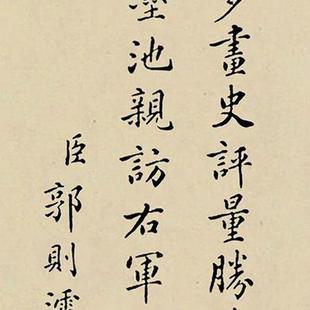 畫史評量勝
墨池親訪右軍
臣郭則澐